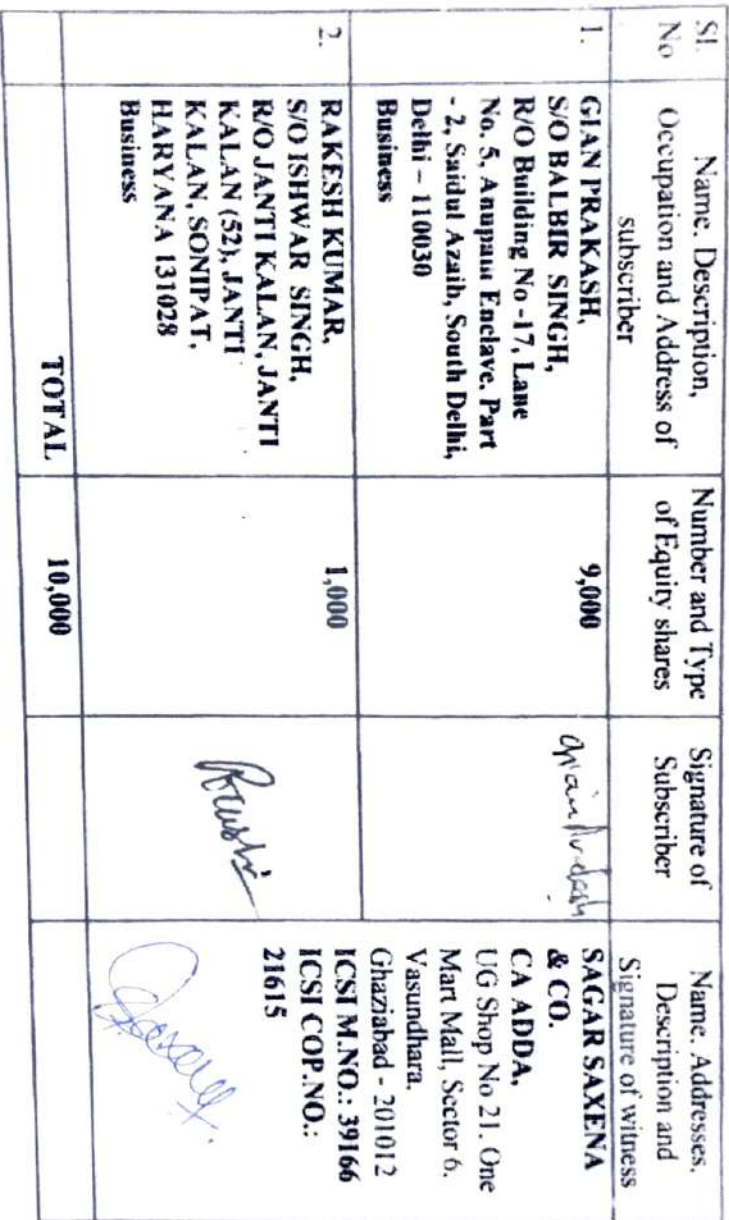 Sl.
No
Name, Description,
Occupation and Address of
subscriber
Number and Type
of Equity shares
Signature of
Subscriber
Name, Addresses,
Description and
Signature of witness
1.
GIAN PRAKASH,
S/O BALBIR SINGH,
R/O Building No -17, Lane
No. 5, Anupam Enclave, Part
- 2, Saidul Azaib, South Delhi,
Delhi – 110030
Business
9,000
Gian Prakash
SAGAR SAXENA
& CO.
CA ADDA,
UG Shop No 21, One
Mart Mall, Sector 6,
Vasundhara,
Ghaziabad - 201012
ICSI M.NO.: 39166
ICSI COP.NO.:
21615
2.
RAKESH KUMAR,
S/O ISHWAR SINGH,
R/O JANTI KALAN, JANTI
KALAN (52), JANTI
KALAN, SONIPAT,
HARYANA 131028
Business
1,000
TOTAL
10,000